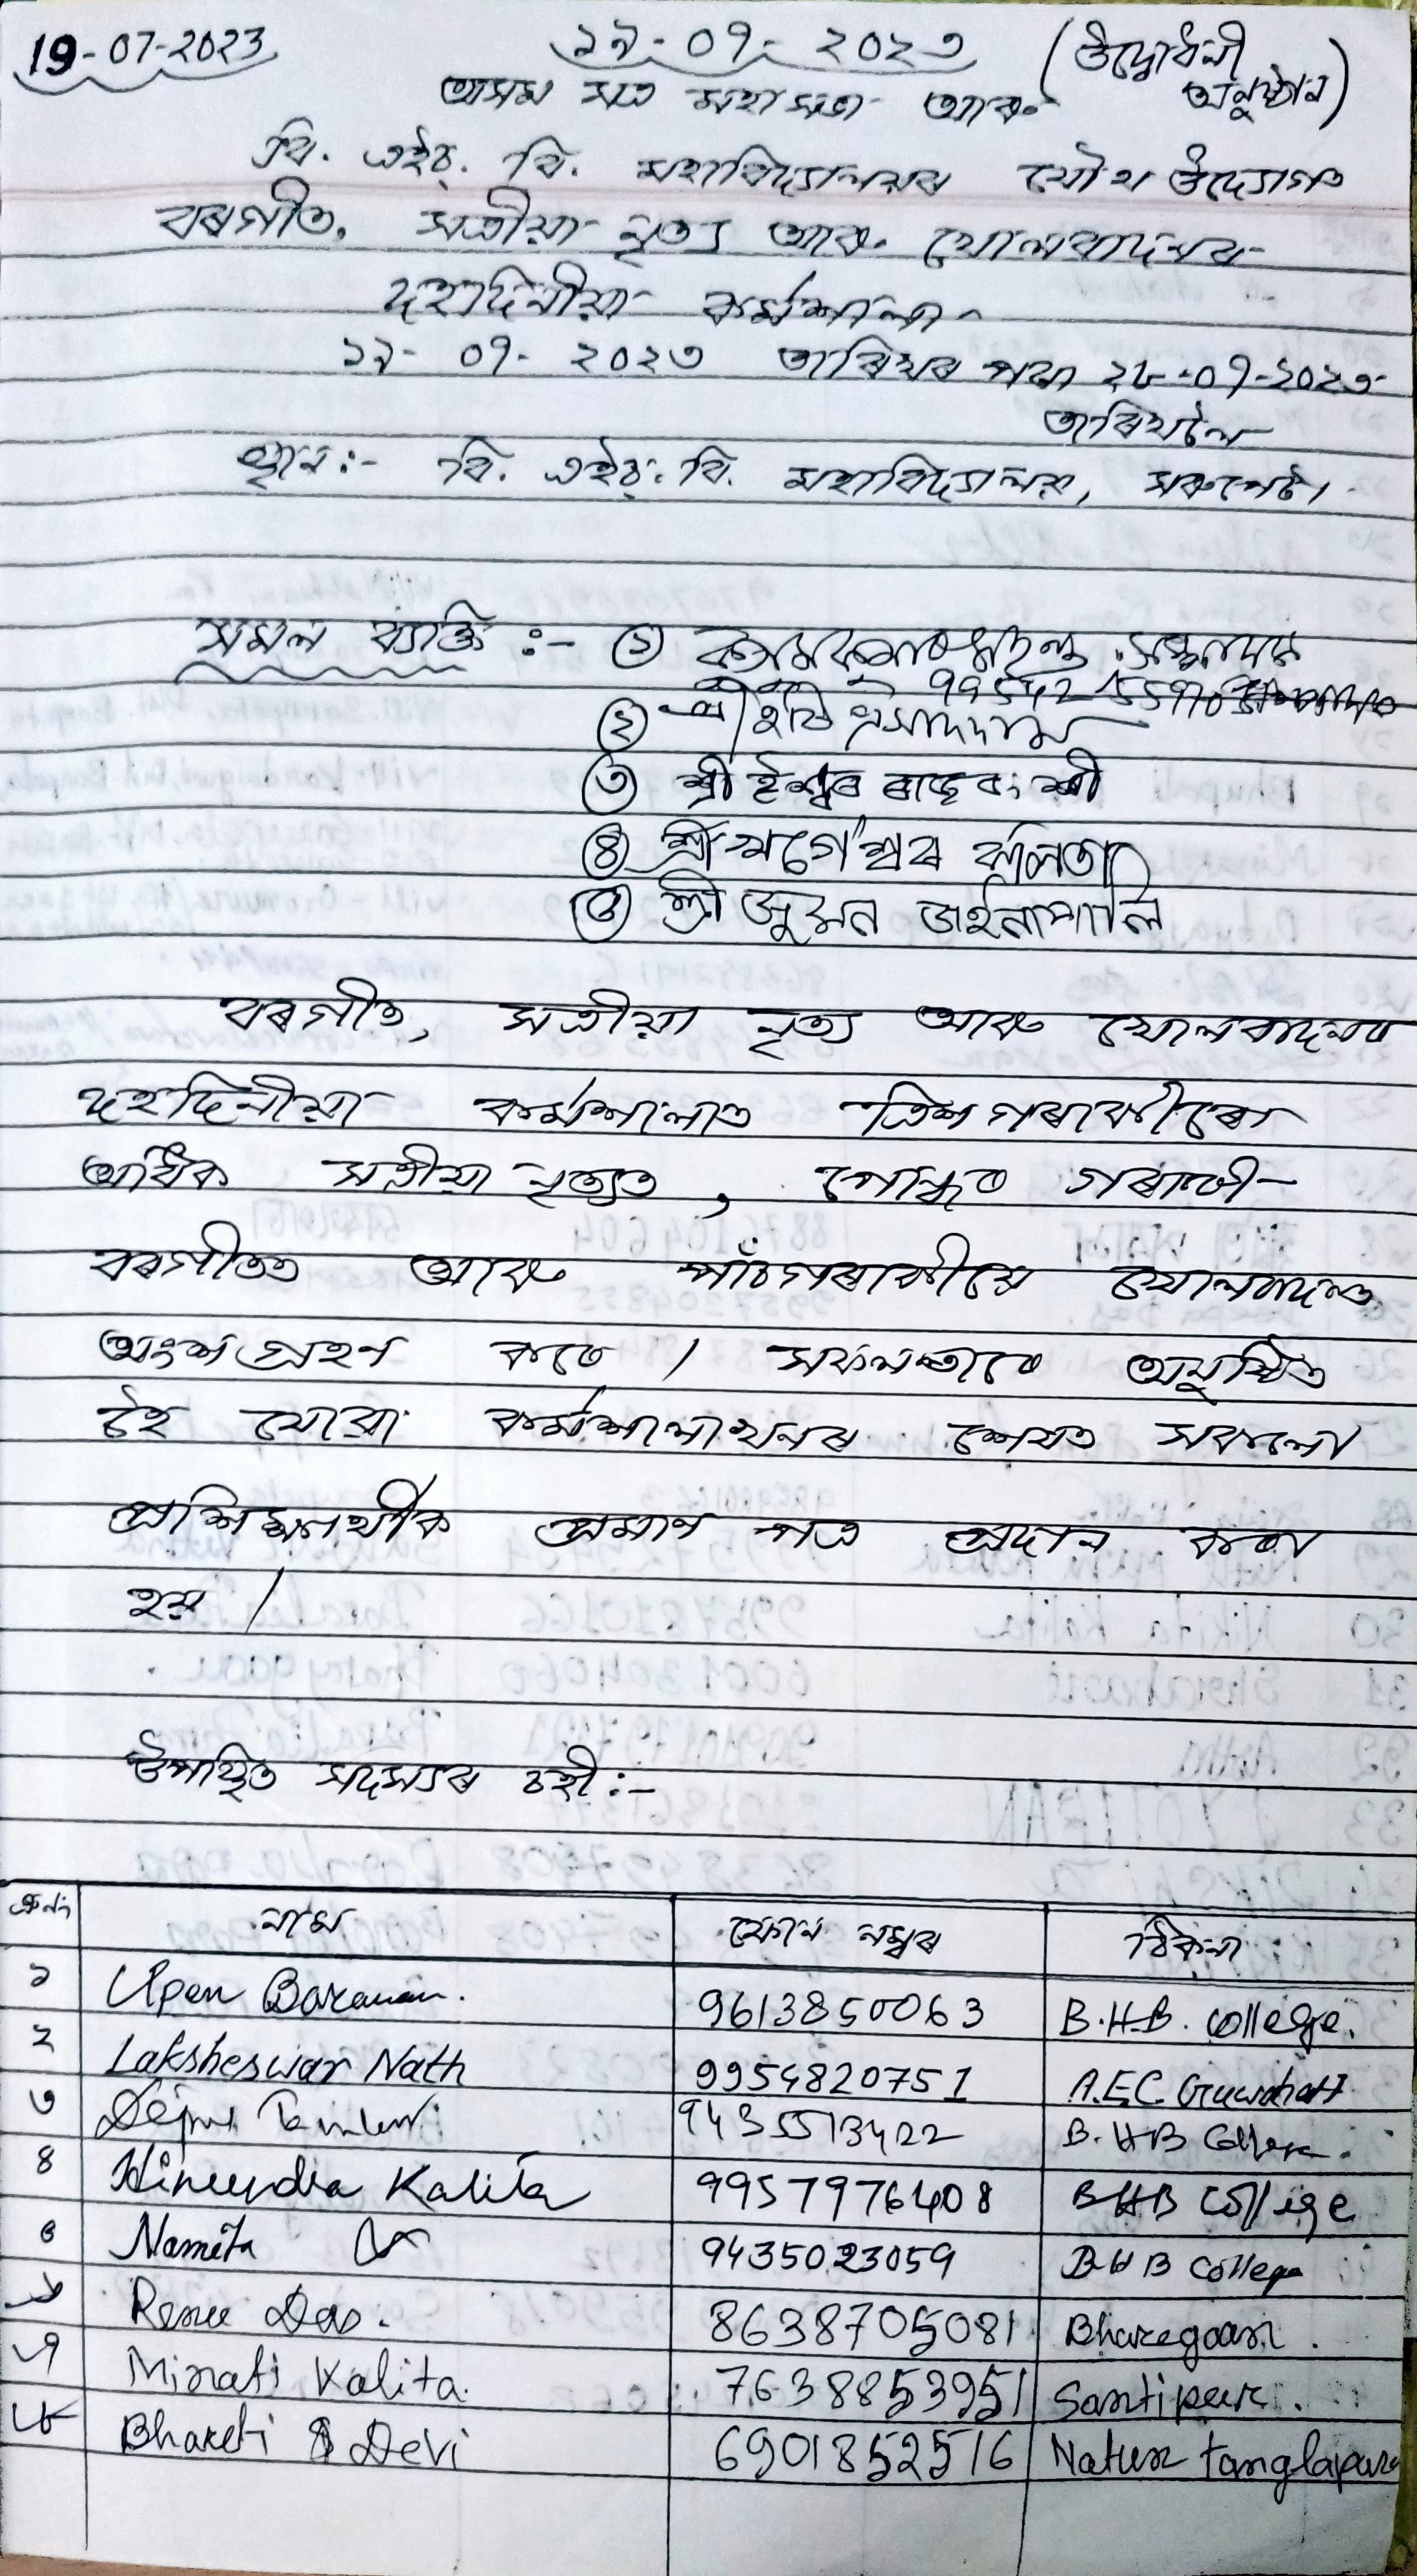 19-07-2023
১৯-০৭-২০২৩ (উদ্বোধনী অনুষ্ঠান)
অসম সত্ৰ মহাসভা আৰু
বি. এইচ. বি. মহাবিদ্যালয়ৰ যৌথ উদ্যোগত
বৰগীত, সত্ৰীয়া নৃত্য আৰু খোলবাদনৰ
দহদিনীয়া কৰ্মশালা
১৯-০৭-২০২৩ তাৰিখৰ পৰা ২৮-০৭-২০২৩
তাৰিখলৈ
স্থান:- বি. এইচ. বি. মহাবিদ্যালয়, সৰুপেটা।
সমল ব্যক্তি :- ১)
99542
২) শ্ৰী হৰি প্ৰসাদ দাস
৩) শ্ৰী ঈশ্বৰ
৪) শ্ৰী খগেশ্বৰ কলিতা
৫) শ্ৰী
বৰগীত, সত্ৰীয়া নৃত্য আৰু খোলবাদনৰ
দহদিনীয়া কৰ্মশালাত ত্ৰিশ গৰাকীৰো
অধিক সত্ৰীয়া নৃত্যত, পোন্ধৰ গৰাকী
বৰগীতত আৰু পাঁচগৰাকীয়ে খোলবাদনত
অংশ গ্ৰহণ কৰে। সফলভাৱে অনুষ্ঠিত
হৈ যোৱা কৰ্মশালাখনৰ শেষত সকলো
প্ৰশিক্ষাৰ্থীক প্ৰমাণ পত্ৰ প্ৰদান কৰা
হয়।
উপস্থিত সদস্যৰ চহী :-
ক্ৰ.নং নাম ফোন নম্বৰ ঠিকনা
১ Upen Barman. 9613850063 B.H.B. college.
২ Laksheswar Nath 9954820751 A.E.C. Guwahati
৩ 9435513422 B.H.B College.
৪ Kalita 9957976408 BHB College
৫ Namita 9435023059 B H B College
৬ Renu Das. 8638705081 Bharegaon.
৭ Minati Kalita. 7638853951 Santipur.
৮ Bharati Devi 6901852516 Natun tanglapara